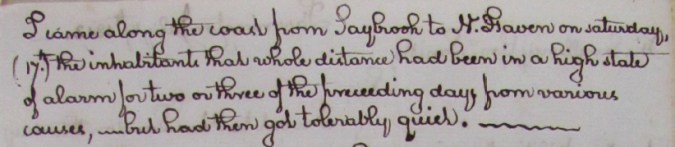 I came along the coast from Saybrook to N. Haven on saturday,
(17th) the inhabitants that whole distance had been in a high state
of alarm for two or three of the preceeding days from various
causes, —but had then got tolerably quiet. ———